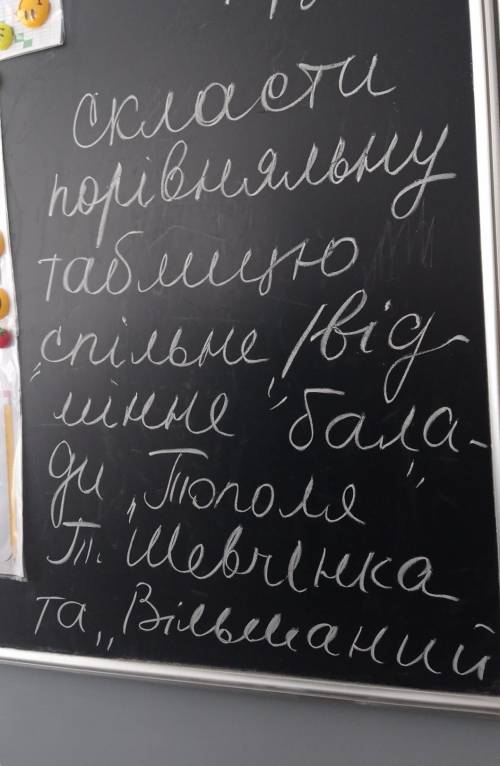 скласти
порівняльну
таблицю
„спільне/від
мінне" бала-
ди „Тополя"
Т. Шевченка
та „Вільшаний